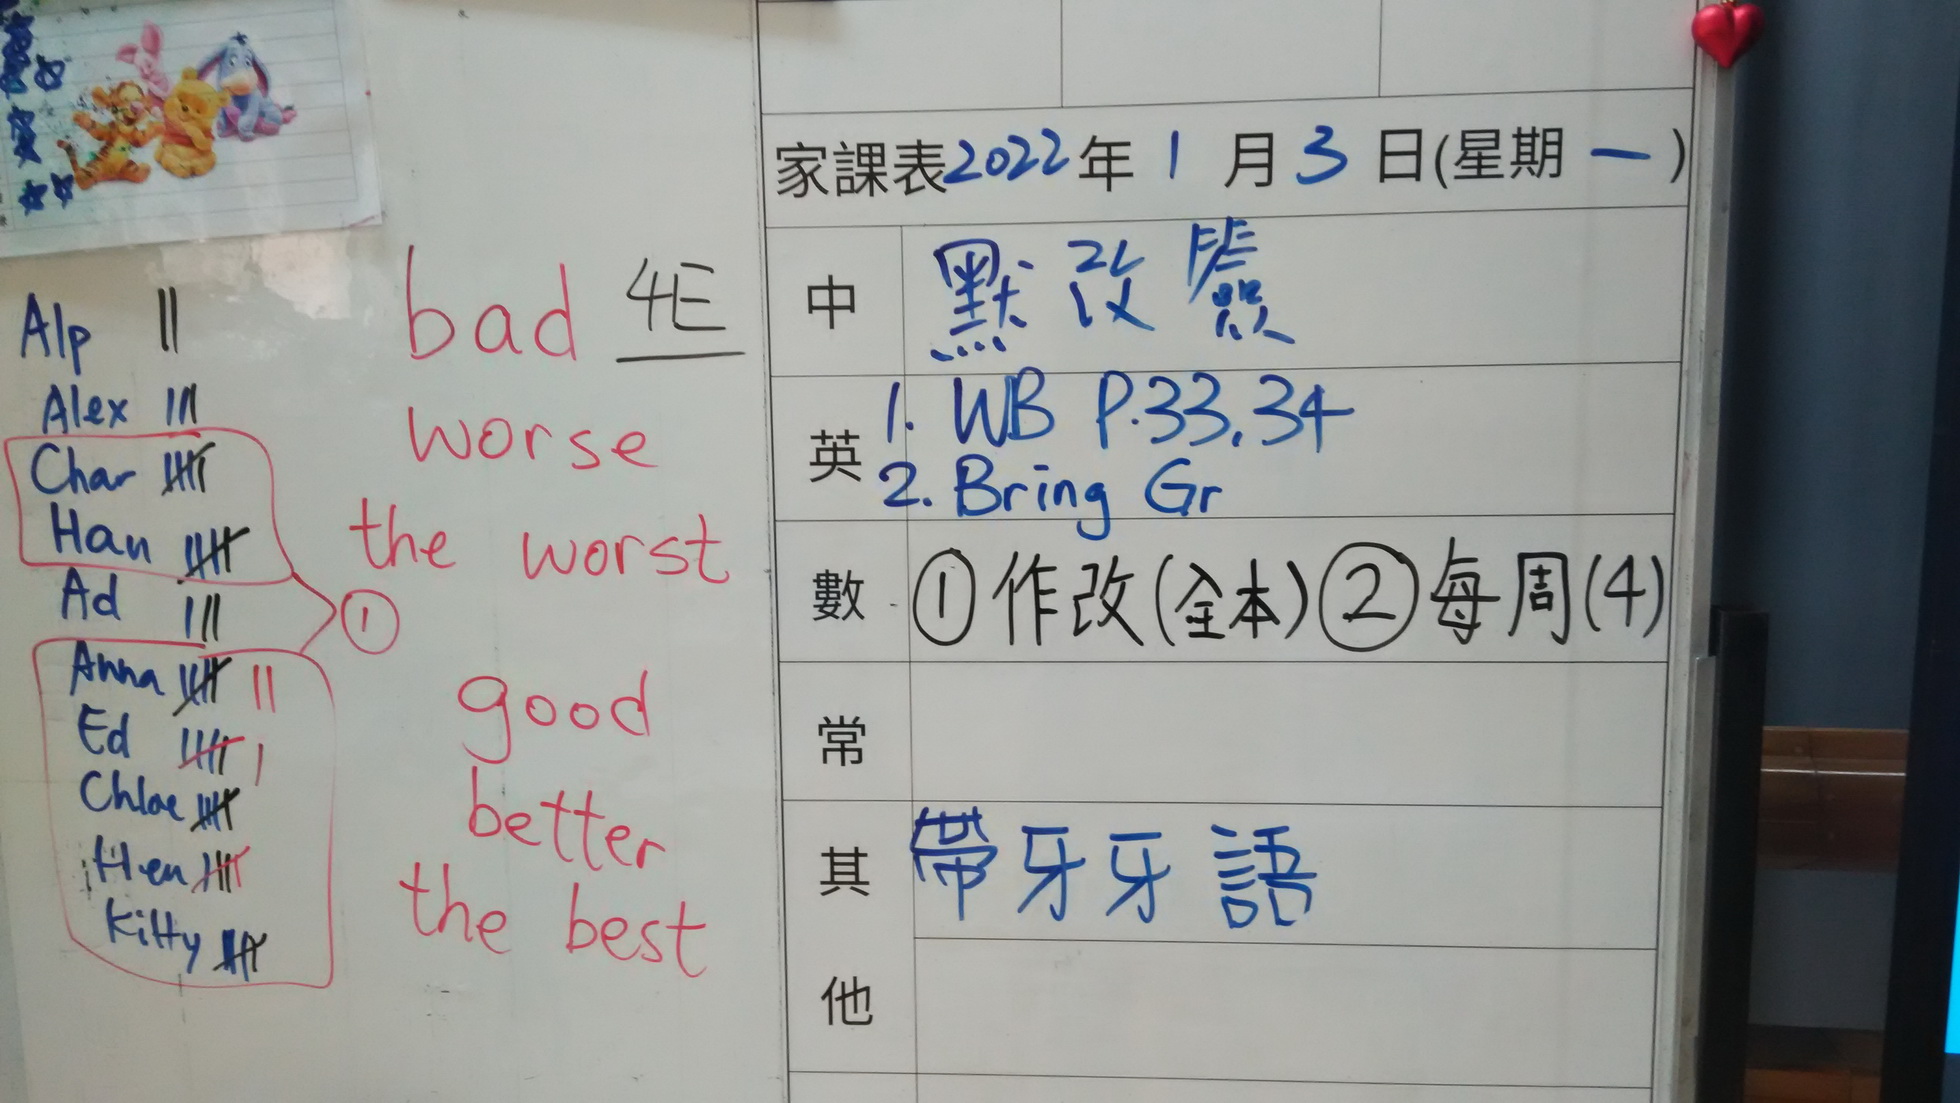 Alp
Alex
Char
Han
Ad
①
Anna
Ed
Chloe
Hen
Kitty
bad 4E
worse
the worst
good
better
the best
家課表2022年1月3日(星期一)
中 默改
英 1. WB P.33,34
2. Bring Gr
數 ①作改(全本)②每周(4)
常
其他 帶牙牙語